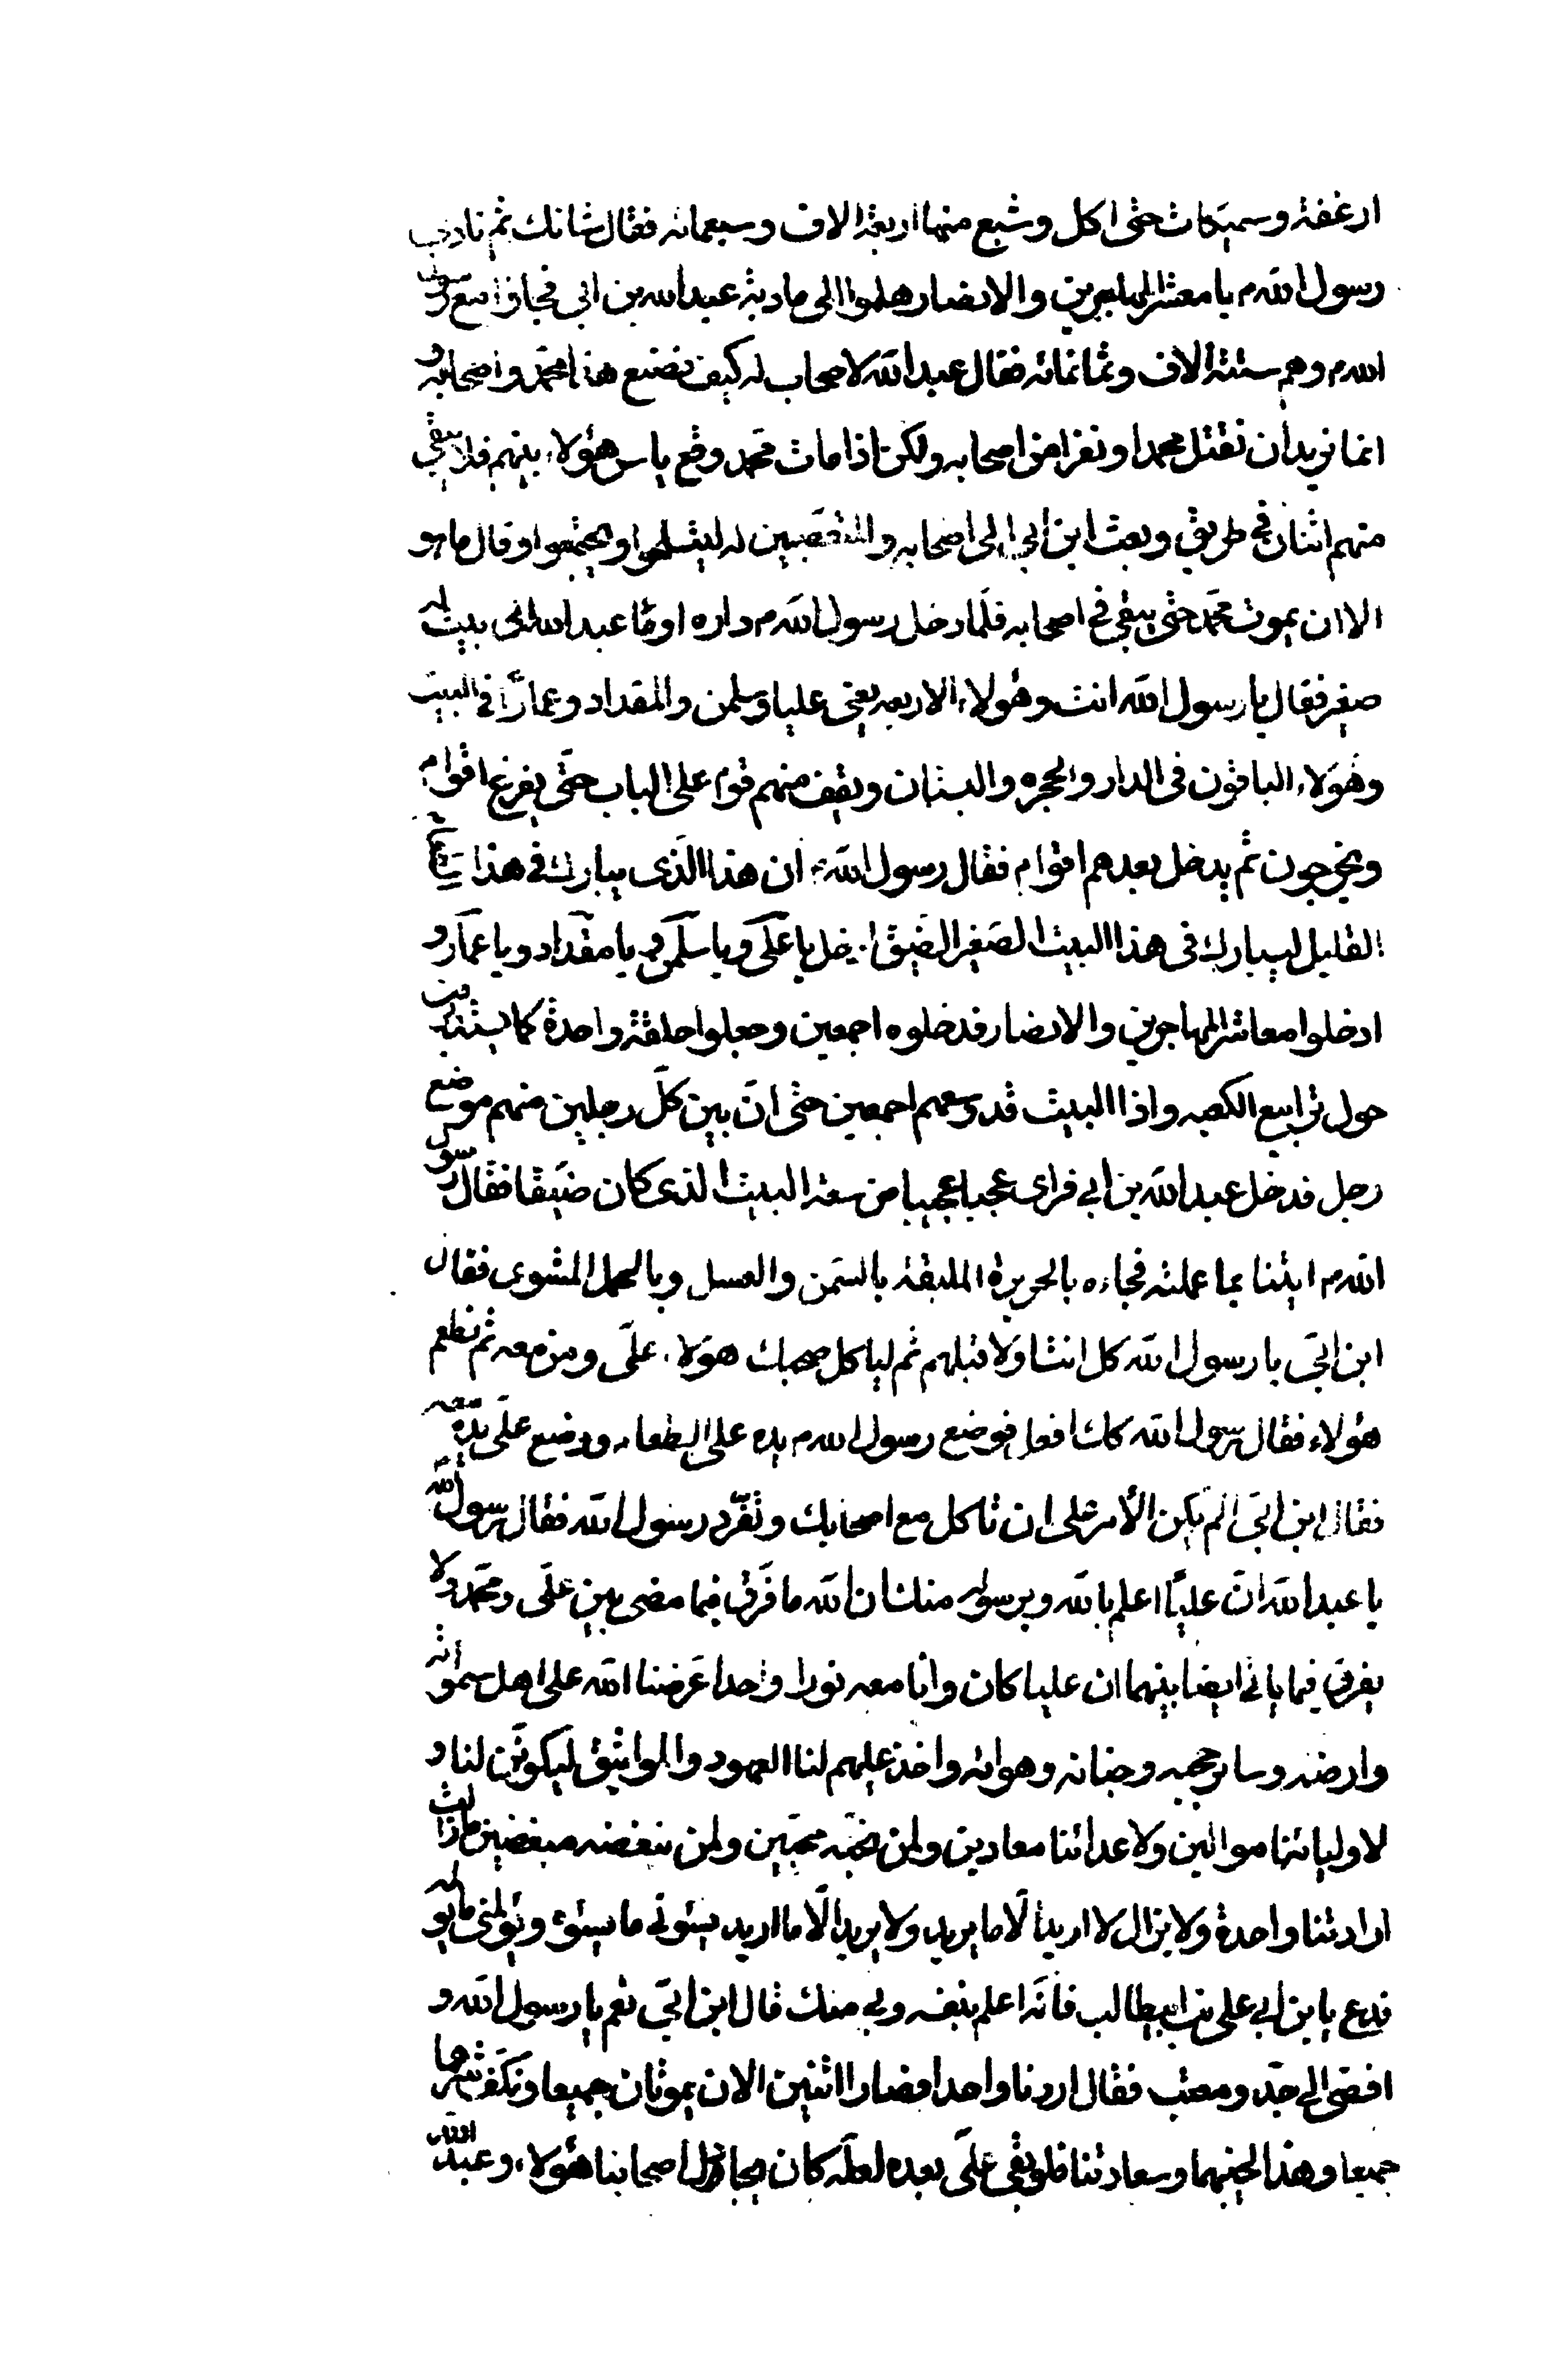 ارغفة وسميكات حتى اكل وشبع منها اربعة الاف وسبعمائه فقال شانك ثم نادى
رسول الله م يا معشر المهاجرين والانصار هلموا الى مادبة عبدالله بن ابي فجاؤا مع رسول
الله م وهم ستة ألاف وثمانمائه فقال عبدالله لاصحاب له كيف نصنع هذا محمد واصحابه و
انما نريد ان نقتل محمدا ونفرا من اصحابه ولكن اذا مات محمد وقع باس هؤلاء بينهم فلا يبقى
منهم اثنان في طريق وبعث ابن ابي الى اصحابه والمتعصبين له ليتسلحوا ويجتمعوا وقال ما هو
الا ان يموت محمد حتى يبقى في اصحابه فلما دخل رسول الله م داره اومأ عبدالله الى بيت له
صغير فقال يا رسول الله انت وهؤلاء الاربعه يعنى عليا وسلمن والمقداد وعمارا في البيت
وهؤلاء الباقون فى الدار والحجره والبستان ويقف منهم قوم على الباب حتى يفرغ اقوام
ويخرجون ثم يدخل بعدهم اقوام فقال رسول الله ان هذا الذى يبارك فى هذا
القليل ليبارك فى هذا البيت الصغير الضيق ادخل يا على ويا سلمن ويا مقداد ويا عمار و
ادخلوا معاشر المهاجرين والانصار فدخلوه اجمعين وجعلوا حلقة واحدة كما يستديرون
حول ترابيع الكعبه واذا البيت قد وسعهم اجمعين حتى ان بين كل رجلين منهم موضع
رجل فدخل عبدالله بن ابي فراى عجبا عجيبا من سعة البيت الذى كان ضيقا فقال رسول
الله م ايتنا بما عملته فجاءه بالحريرة الملبقة بالسمن والعسل وبالحمل المشوى فقال
ابن ابي يا رسول الله كل انت اولا قبلهم ثم لياكل صحبك هؤلاء على ومن معه ثم نطعم
هؤلاء فقال رسول الله كك افعل فوضع رسول الله م يده على الطعام ووضع على يده معه
فقال ابن ابي الم يكن الأمر على ان تاكل مع اصحابك وتفرد رسول الله فقال رسول الله
يا عبدالله ان عليا اعلم بالله وبرسوله منك ان الله ما فرق فيما مضى بين على ومحمد ولا
يفرق فيما ياتي ايضا بينهما ان عليا كان وانا معه نورا واحدا عرضنا الله على اهل سمواته
وارضه وساير حجبه وجنانه وهوائه واخذ عليهم لنا العهود والمواثيق ليكونن لنا و
لاوليائنا موالين ولاعدائنا معادين ولمن نحبه محبين ولمن نبغضه مبغضين ما زالت
ارادتنا واحدة ولا يزال لا اريد الا ما يريد ولا يريد الا ما اريد يسوئني ما يسوئه ويؤلمنى ما يؤلمه
فدع يا بن ابي على بن ابيطالب فانه اعلم بنفسه وبي منك قال ابن ابي نعم يا رسول الله و
افضى الى جد ومعتب فقال اردنا واحدا فصارا اثنين الان يموتان جميعا ونكفى شرهما
جميعا وهذا لحينهما وسعادتنا فلو بقى على بعده لعله كان يجادل اصحابنا هؤلاء وعبدالله